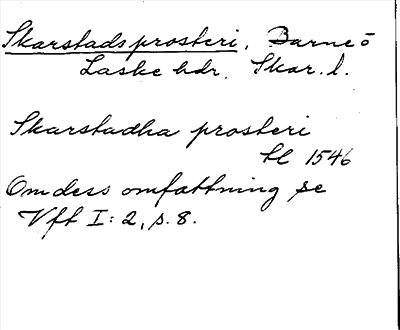 Skarstads prosteri, Barne o
Laske hdr. Skar. l.
Skarstadha prosteri
tl 1546
Om dess omfattning se
Vft I: 2, s. 8.